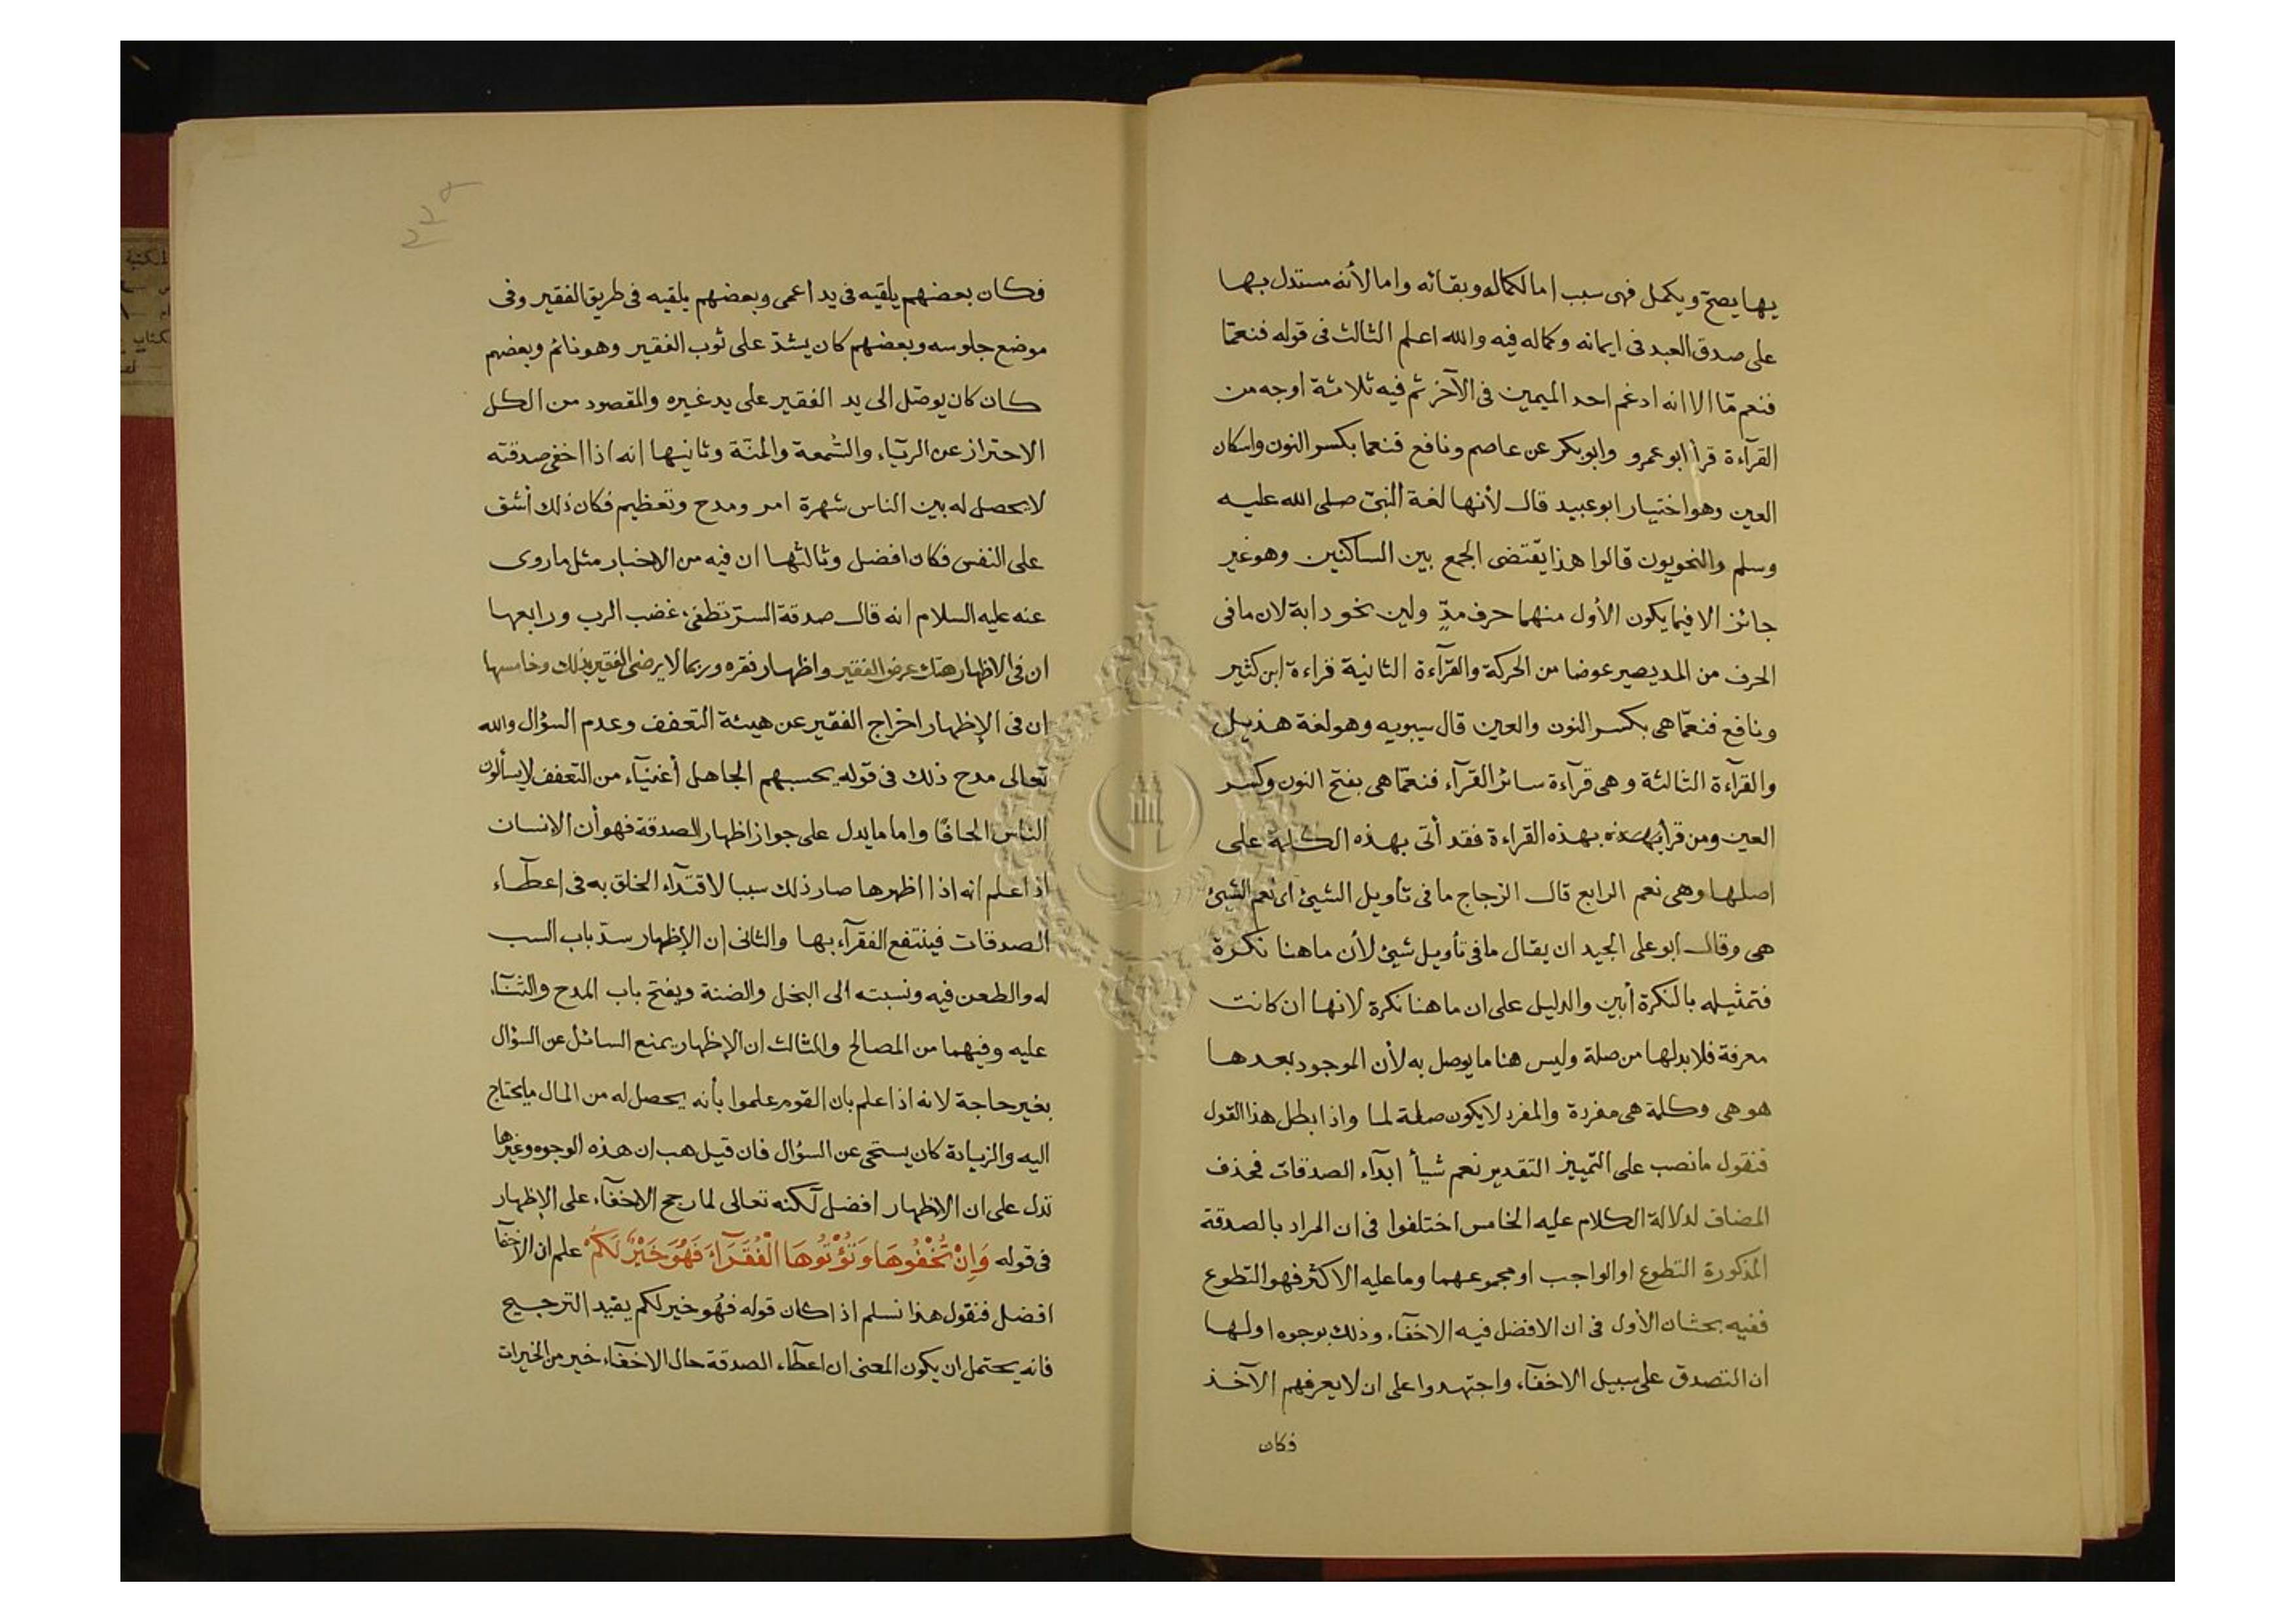 بها يصح ويكمل فهى سبب اما لكماله وبقائه واما لأنه مستدل بها
على صدق العبد فى ايمانه وكماله فيه والله اعلم الثالث فى قوله فنعمّا
فنعم مّا الا انه ادغم احد الميمين فى الآخر ثم فيه ثلاثة اوجه من
القرآءة قرأ ابو عمرو وابو بكر عن عاصم ونافع فنعما بكسر النون واسكان
العين وهو اختيار ابو عبيد قال لأنها لغة النبىّ صلى الله عليه
وسلم والنحويون قالوا هذا يقتضى الجمع بين الساكنين وهو غير
جائز الا فيما يكون الأول منهما حرف مدّ ولين نحو دابة لان ما فى
الحرف من المد يصير عوضا من الحركة والقرآءة الثانية قراءة ابن كثير
ونافع فنعمّا هى بكسر النون والعين قال سيبويه وهو لغة هذيل
والقرآءة الثالثة وهى قرآءة سائر القرآء فنعمّا هى بفتح النون وكسر
العين ومن قرأ بهذه القراءة فقد أتى بهذه الكلمة على
اصلها وهى نعم الرابع قال الزجاج ما فى تأويل الشيئ اى نعم الشيئ
هى وقال ابو على الجيد ان يقال ما فى تأويل شيئ لأن ما هنا نكرة
فتمثيله بالنكرة أبين والدليل على ان ما هنا نكرة لانها ان كانت
معرفة فلا بد لها من صلة وليس هنا ما يوصل به لأن الموجود بعدها
هو هى وكلمة هى مفردة والمفرد لا يكون صلة لما واذا بطل هذا القول
فنقول ما نصب على التمييز التقدير نعم شيأ ابدآء الصدقات فحذف
المضاف لدلالة الكلام عليه الخامس اختلفوا فى ان المراد بالصدقة
المذكورة التطوع او الواجب او مجموعهما وما عليه الاكثر فهو التطوع
ففيه بحثان الأول فى ان الافضل فيه الاخفآء وذلك بوجوه اولها
ان التصدق على سبيل الاخفآء واجتهدوا على ان لا يعرفهم الآخذ
فكان
فكان بعضهم يلقيه فى يد اعمى وبعضهم يلقيه فى طريق الفقير وفى
موضع جلوسه وبعضهم كان يشدّ على ثوب الفقير وهو نائم وبعضهم
كان كان يوصّل الى يد الفقير على يد غيره والمقصود من الكل
الاحتراز عن الريآء والسُّمعة والمنّة وثانيها انه اذا اخفى صدقته
لا يحصل له بين الناس شهرة امر ومدح وتعظيم فكان ذلك أشق
على النفس فكان افضل وثالثها ان فيه من الاخبار مثل ما روى
عنه عليه السلام انه قال صدقة السرّ تطفىء غضب الرب ورابعها
ان فى الاظهار هتك عرض الفقير واظهار نقره وربما لا يرضى الفقير بذلك وخامسها
ان فى الإظهار اخراج الفقير عن هيئة التعفف وعدم السؤال والله
تعالى مدح ذلك فى قوله يحسبهم الجاهل أغنيآء من التعفف لا يسألون
الناس الحافًا واما ما يدل على جواز اظهار الصدقة فهو أن الانسان
اذ اعلم انه اذا اظهرها صار ذلك سببا لاقتدآء الخلق به فى إعطآء
الصدقات فينتفع الفقرآء بها والثانى ان الإظهار سدّ باب السب
له والطعن فيه ونسبته الى البخل والضنة ويفتح باب المدح والثنآء
عليه وفيهما من المصالح والثالث ان الإظهار يمنع السائل عن السؤال
بغير حاجة لانه اذا علم بان القوم علموا بأنه يحصل له من المال ما يحتاج
اليه والزيادة كان يستحى عن السؤال فان قيل هب ان هذه الوجوه وغيرها
تدل على ان الاظهار افضل لكنه تعالى لما رجح الاخفآء على الإظهار
فى قوله وَاِنْ تُخْفُوهَا وَتُؤْتُوهَا الْفُقَرَآءَ فَهُوَ خَيْرٌ لَكُمْ علم ان الاخفآ
افضل فنقول هذا نسلم اذا كان قوله فهُو خير لكم يفيد الترجيح
فانه يحتمل ان يكون المعنى ان اعطآء الصدقة حال الاخفآء خير من الخيرات